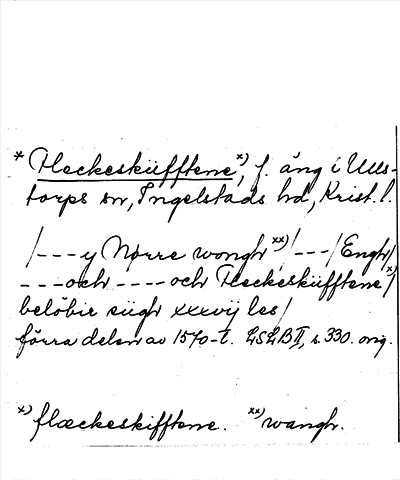 * Fleckeskiifftene x), f. äng i Ulls-
torps sn, Ingelstads hd, Krist. l.
/---y Nørre wongh xx)/---/Engh/
---och ----och Fleckeskiifftene x)/
belöbir siigh xxxvij les/
förra delen av 1570-t. LSLB II, s. 330. orig.
x) flæckeskifftene. xx) wangh.